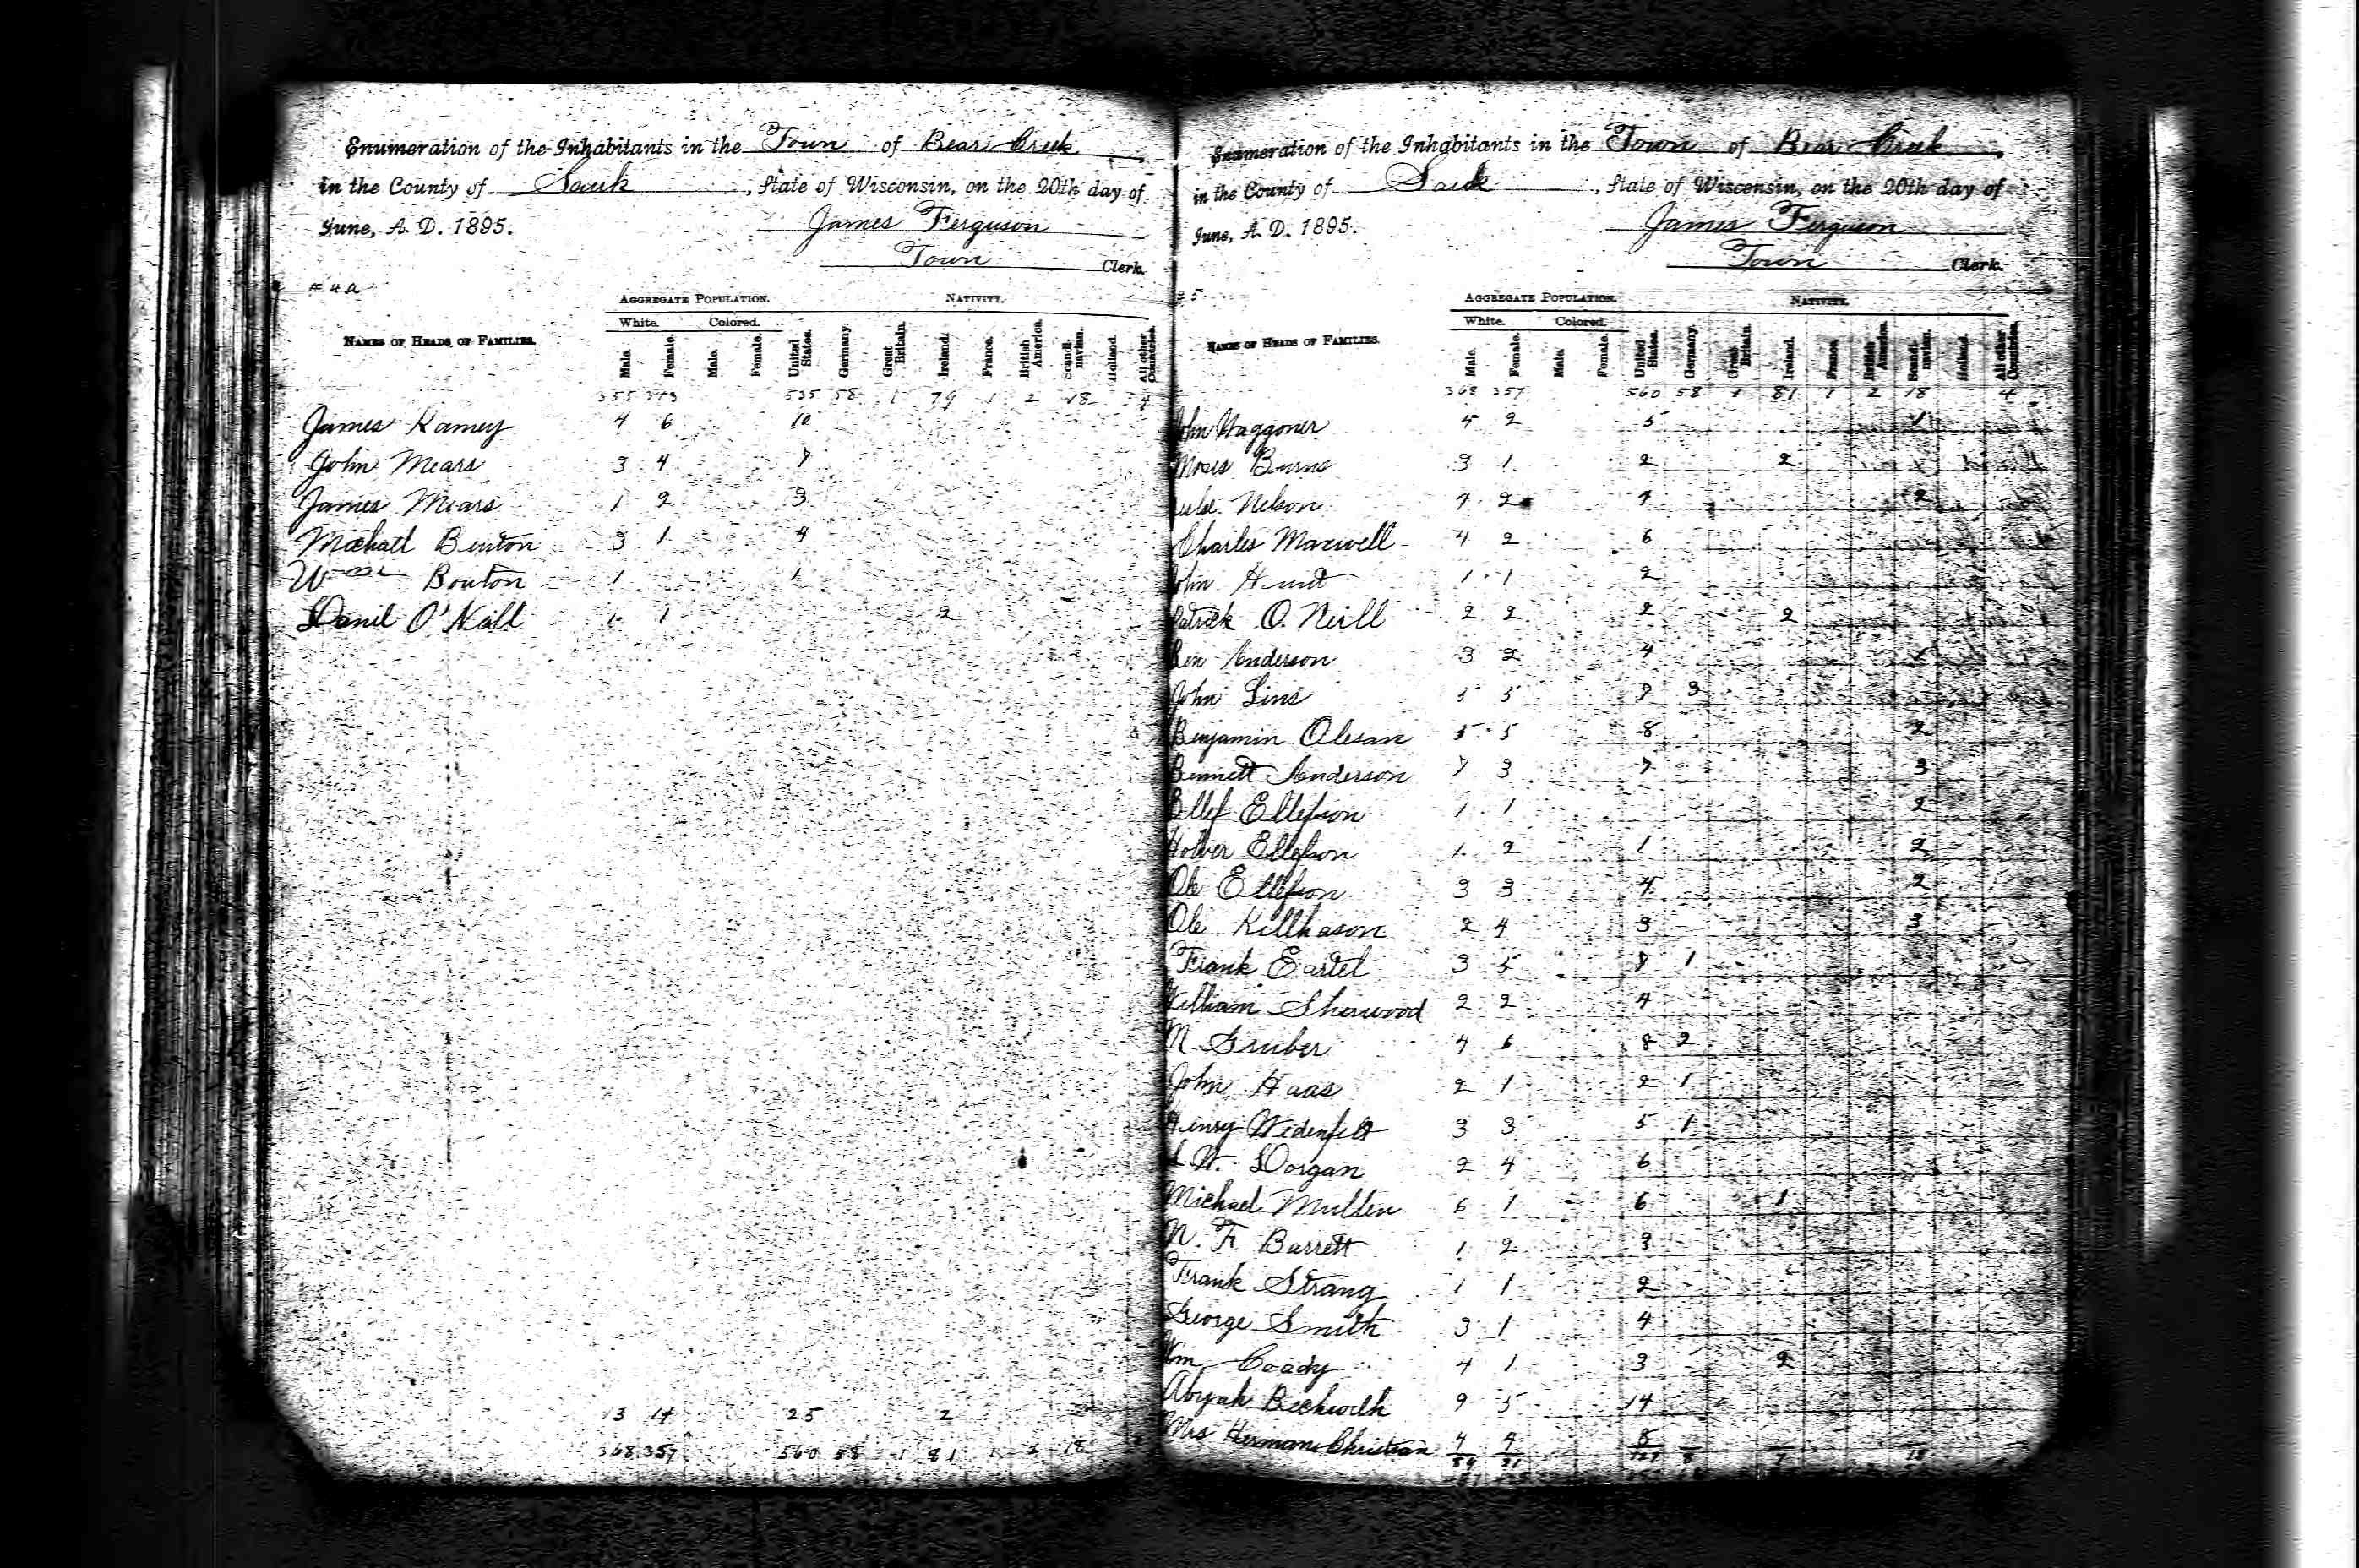 Enumeration of the Inhabitants in the Town of Bear Creek
in the County of Sauk, State of Wisconsin, on the 20th day of
June, A. D. 1895. James Ferguson
Town Clerk.
# 4 a
AGGREGATE POPULATION. NATIVITY.
White. Colored.
NAMES OF HEADS OF FAMILIES. Male. Female. Male. Female. United States. Germany. Great Britain. Ireland. France. British America. Scandinavian. Holland. All other Countries.
355 343 535 58 1 79 1 2 18 4
James Ramey 4 6 10
John Mears 3 4 7
James Mears 1 2 3
Michall Benton 3 1 4
Wm Bouton 1 1
Danil O'Neall 1 1 2
13 14 25 2
368 357 560 58 1 81 1 2 18
Enumeration of the Inhabitants in the Town of Bear Creek,
in the County of Sauk, State of Wisconsin, on the 20th day of
June, A. D. 1895. James Ferguson
Town Clerk.
# 5
AGGREGATE POPULATION. NATIVITY.
White. Colored.
NAMES OF HEADS OF FAMILIES. Male. Female. Male. Female. United States. Germany. Great Britain. Ireland. France. British America. Scandinavian. Holland. All other Countries.
368 357 560 58 1 81 1 2 18 4
John Waggoner 4 2 5 1
Moses Burns 3 1 2 2
Nelson 4 2 4 2
Charles Maxwell 4 2 6
John Hunt 1 1 2
Patrick O. Neill 2 2 2 2
Ben Anderson 3 2 4 1
John Lins 5 5 7 3
Benjamin Olesan 5 5 8 2
Bennett Anderson 7 3 7 3
Ellef Ellefson 1 1 2
Holver Ellefson 1 2 1 2
Ole Ellefson 3 3 4 2
Ole Killhason 2 4 3 3
Frank Eartel 3 5 7 1
William Sherwood 2 2 4
N Gruber 4 6 8 2
John Haas 2 1 2 1
Henry Widenfelt 3 3 5 1
W. Dorgan 2 4 6
Michael Mullen 6 1 6 1
N. F. Barrett 1 2 3
Frank Strang 1 1 2
George Smith 3 1 4
Wm Coady 4 1 3 2
Abijah Beckwith 9 5 14
Mrs Herman Christian 4 4 8
127 8 7 18